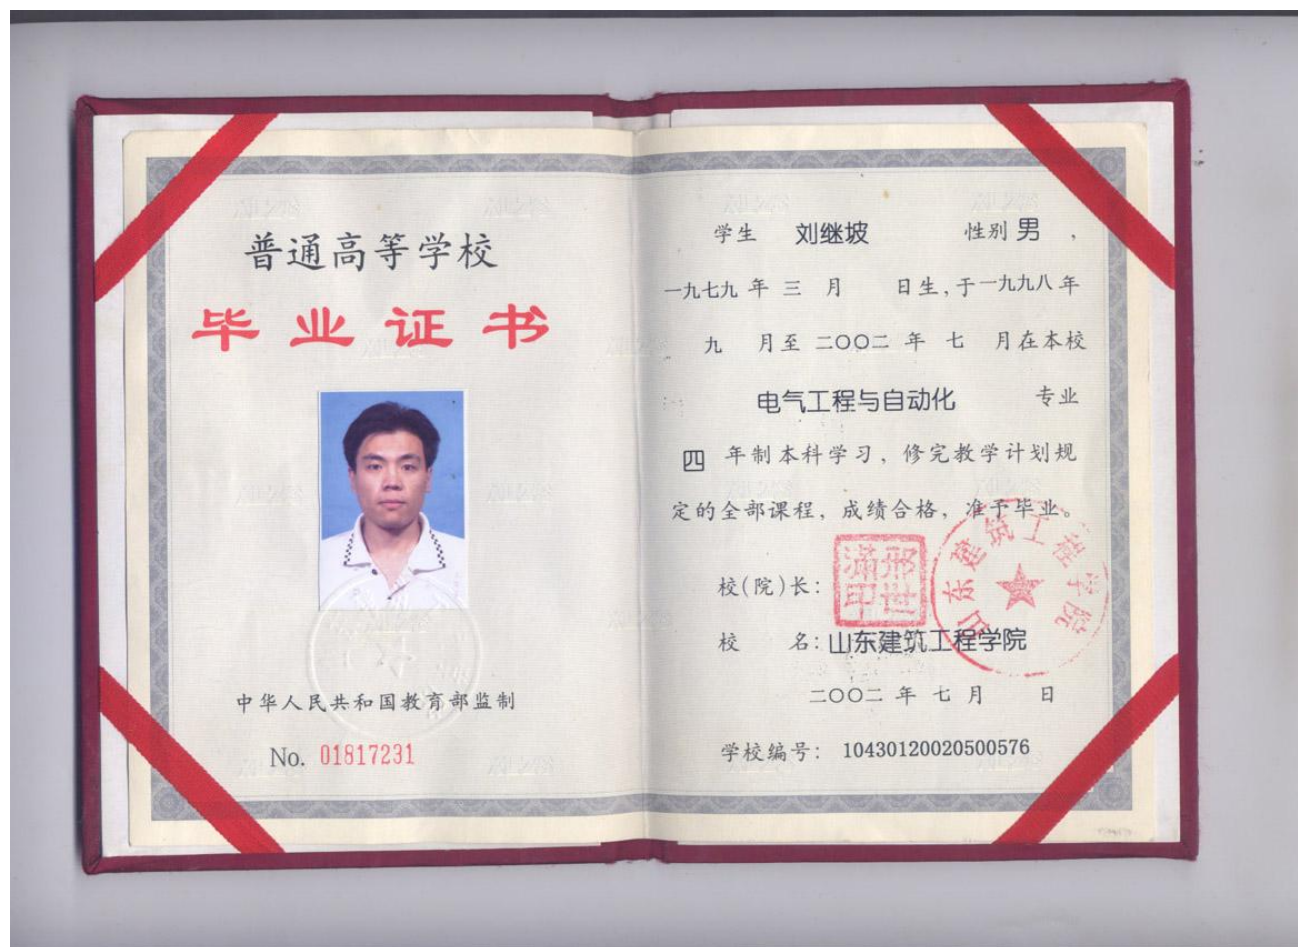 普通高等学校
毕业证书
中华人民共和国教育部监制
No. 01817231
学生 刘继坡 性别 男 ,
一九七九 年 三 月 日生, 于一九九八 年
九 月至 二〇〇二 年 七 月在本校
电气工程与自动化 专业
四 年制本科学习, 修完教学计划规
定的全部课程, 成绩合格, 准予毕业。
校(院)长:
邢世满印
山东建筑工程学院
校 名: 山东建筑工程学院
二〇〇二 年 七 月 日
学校编号: 10430120020500576